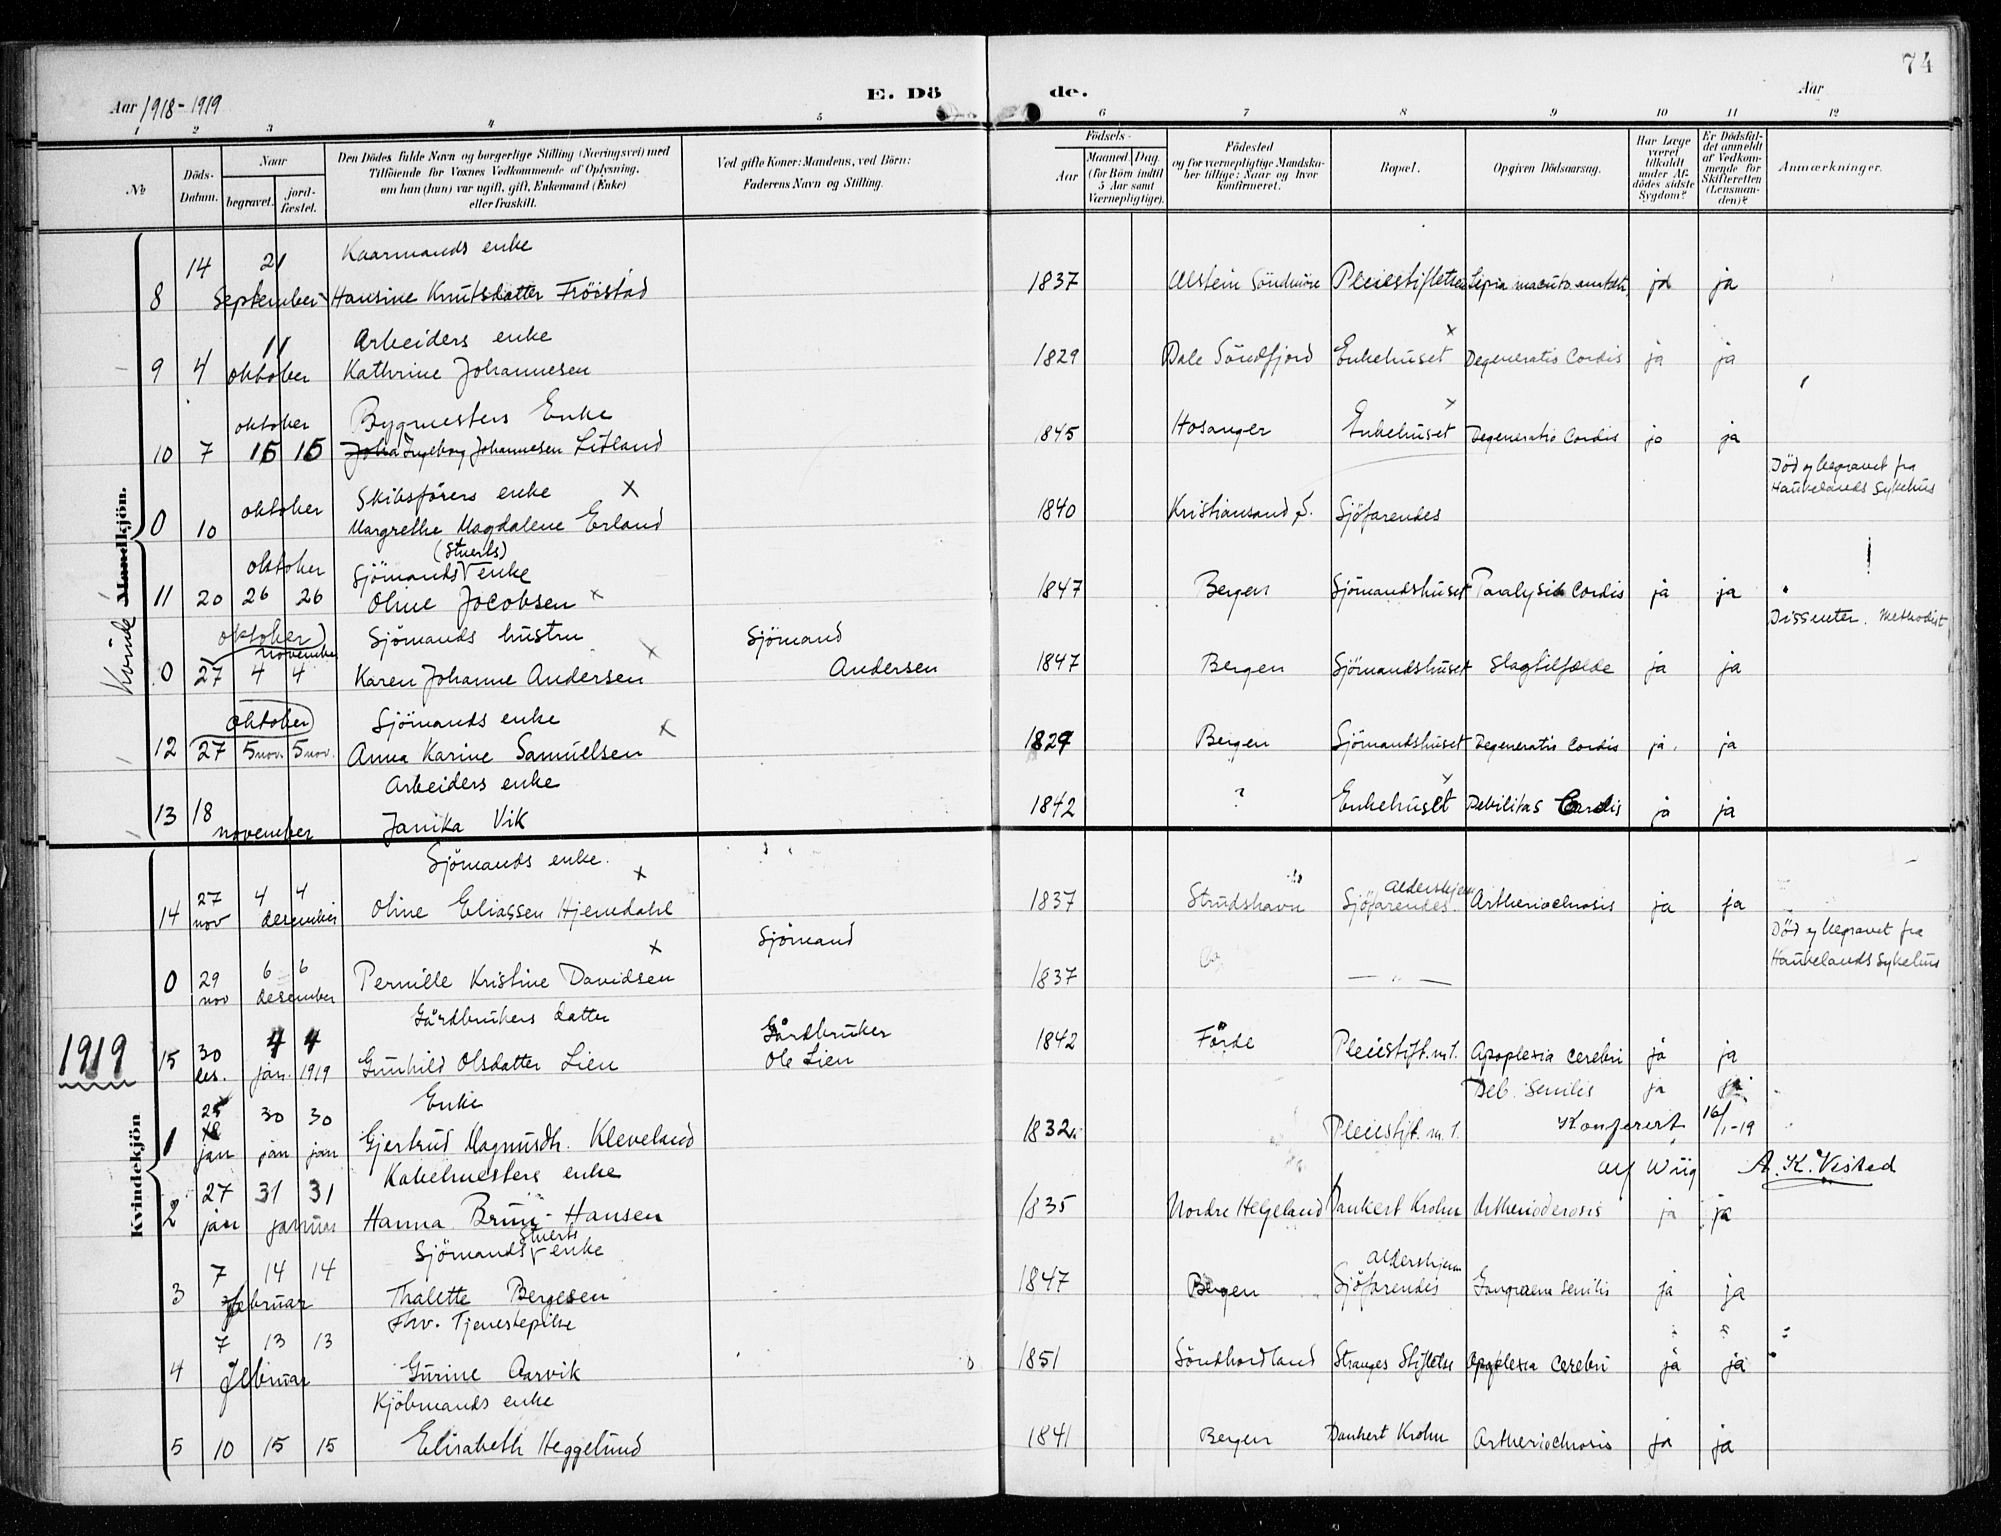 74
Aar 1918-1919 E. Dö de. Aar
1 2 3 4 5 6 7 8 9 10 11 12
№
Döds-Datum.
Naar
begravet.
jord-fæstet.
Den Dödes fulde Navn og borgerlige Stilling (Næringsvei) med
Tilföiende for Voxnes Vedkommende af Oplysning,
om han (hun) var ugift, gift, Enkemand (Enke)
eller fraskilt.
Ved gifte Koner: Mandens, ved Börn:
Faderens Navn og Stilling.
Födsels-
Aar
Maaned. Dag.
(for Börn indtil
5 Aar samt
Værnepligtige).
Födested
og for værnepligtige Mandska-
ber tillige: Naar og hvor
Konfirmeret.
Bopæl.
Opgiven Dödsaarsag.
Har Læge
været
tilkaldt
under Af-
dödes sidste
Sygdom?
Er Dödsfal-
det anmeldt
af Vedkom-
mende for
Skifteretten
(Lensman-
den)?
Anmærkninger.
Mandkjön.
Kvinde
14 21 Kaarmands enke
8 September Hansine Knutsdatter Fröistad 1837 Ulstein Söndmöre Pleiestiftelsen ja ja
11 Arbeiders enke
9 4 oktober Kathrine Johannesen 1829 Dale Söndfjord Enkehuset x Degeneratis Cordis ja ja
oktober Bygmesters Enke
10 7 15 15 Ingeborg Johannesen Litland 1845 Hosanger Enkehuset x Degeneratio Cordis ja ja
Död og begravet fra
Haukelands Sykehus
oktober Skibsförers enke x
0 10 Margrethe Magdalene Erland 1840 Kristiansand S. Sjöfarendes
(Stuerts)
oktober Sjömands enke
11 20 26 26 Oline Jacobsen x 1847 Bergen Sjömandshuset Paralysis Cordis ja ja
Dissenter. Methodist
oktober november Sjömands hustru Sjömand
0 27 4 4 Karen Johanne Andersen x Andersen 1847 Bergen Sjömandshuset Slagtilfælde ja ja
oktober Sjömands enke
12 27 5 nov. 5 nov. Anna Karine Samuelsen x 1827 Bergen Sjömandshuset Degeneratis Cordis ja. ja
Arbeiders enke
13 18 november Janika Vik 1842 ? Enkehuset x Debilitas Cordis ja ja
Sjömands enke. x
14 27 nov 4 4 desember Oline Eliassen Hjemdahl 1837 Strudshavn Sjöfarendes Aldershjem ja ja
Sjömand
Död og begravet fra
Haukelands Sykehus
0 29 nov 6 6 desember Pernille Kristine Davidsen x 1837 — " —
Gårdbrukers datter
1919 15 30 des. 4 4 jan. 1919 Gunhild Olsdatter Lien Gårdbruker Ole Lien 1842 Förde Pleiestift. m 1. Apoplexia cerebri ja ja
Deb. Senilis ja
Kvindekjön
Enke
1 25 jan 30 jan 30 jan Gjertrud Magnusdtr. Kleveland 1832 Pleiestift. m. 1. Konferert 16/1-19
Alf Wiig A. K. Vistad
Kabelmesters enke
2 27 jan 31 31 januar Hanna Bruu-Hansen 1835 Nordre Helgeland Dankert Krohn ja ja
Stuerts
Sjömands enke
3 7 14 14 februar Thalette Bergesen 1847 Bergen Sjöfarendes Aldershjem Gangraena Senilis ja ja
Fhv. Tjenestepike
4 7 13 13 februar Gurine Aarvik 1851 Söndhordland Stranges Stiftelse Apoplexia cerebri ja ja
Kjöbmands enke
5 10 15 15 Elisabeth Heggelund 1841 Bergen Dankert Krohn ja ja